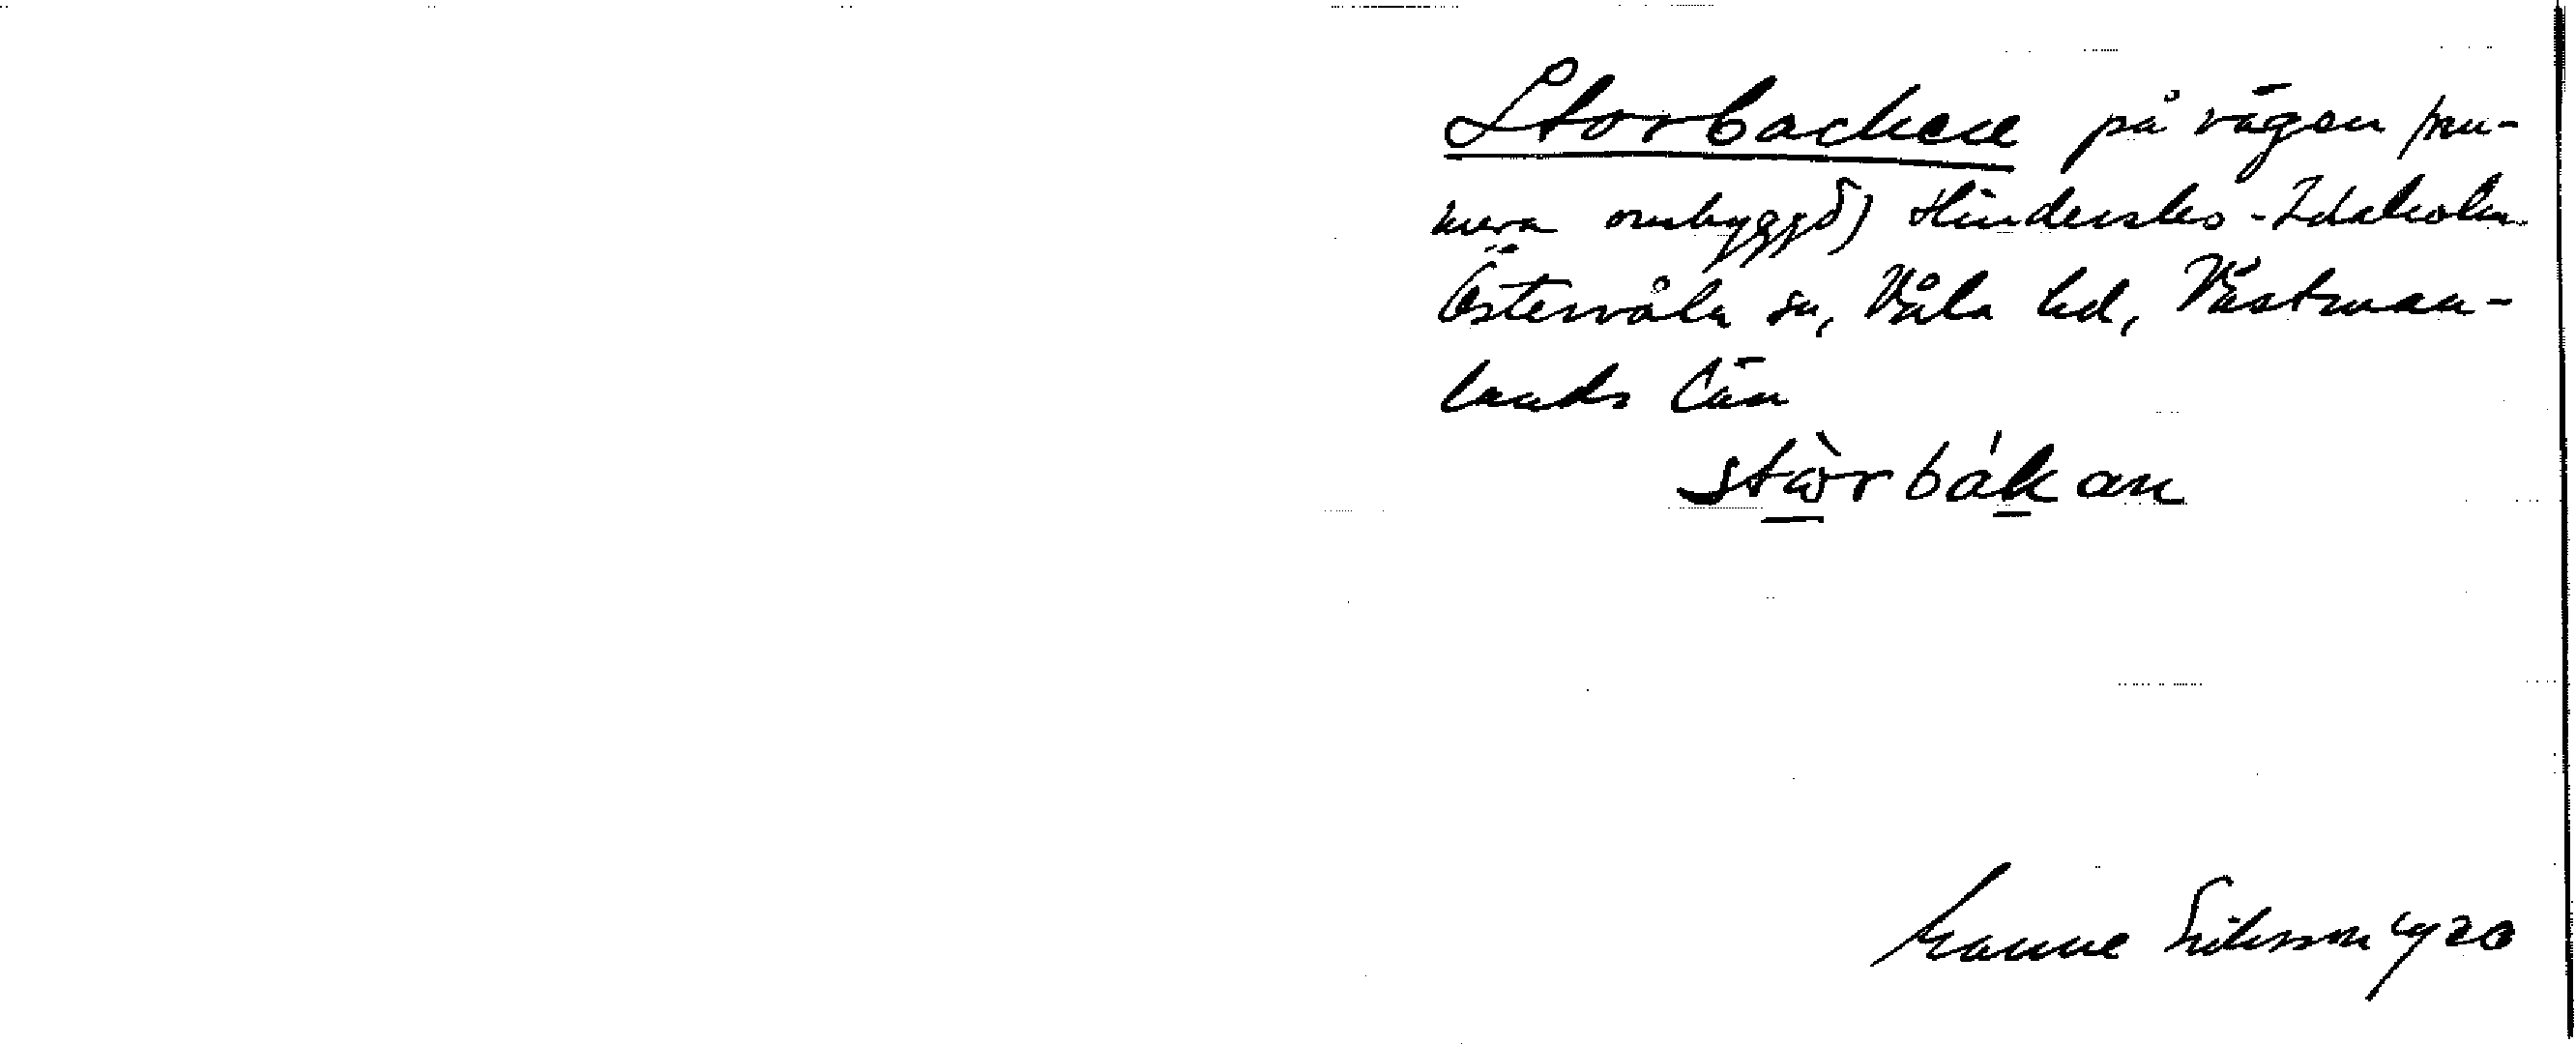 Storbacken på vägen (nu-
mera ombyggd) Hindersbo - Idaholm
Östervåla sn, Våla hd, Västman-
lands län
stòrbákan
Manne Eriksson 1920